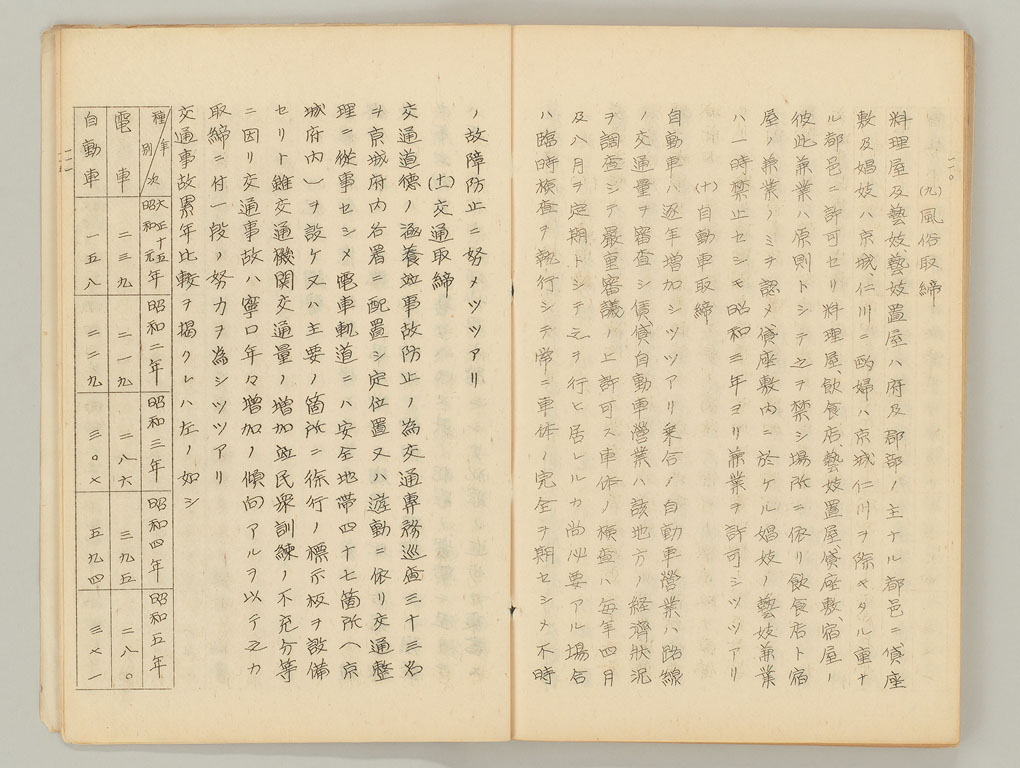 一一〇
(九)風俗取締
料理屋及藝妓藝妓置屋ハ府及郡部ノ主ナル都邑ニ貸座
敷及娼妓ハ京城、仁川ニ酌婦ハ京城仁川ヲ除キタル重ナ
ル都邑ニ許可セリ料理屋、飲食店、藝妓置屋貸座敷、宿屋ノ
彼此兼業ハ原則トシテ之ヲ禁シ場所ニ依リ飲食店ト宿
屋ノ兼業ノミヲ認メ貸座敷内ニ於ケル娼妓ノ藝妓兼業
ハ一時禁止セシモ昭和三年ヨリ兼業ヲ許可シツツアリ
(十)自動車取締
自動車ハ逐年増加シツツアリ乗合ノ自動車營業ハ路線
ノ交通量ヲ審査シ賃貸自動車營業ハ該地方ノ經濟狀況
ヲ調査シテ嚴重審議ノ上許可ス車体ノ檢査ハ毎年四月
及八月ヲ定期トシテ之ヲ行ヒ居レルカ尚必要アル場合
ハ臨時檢査ヲ執行シテ常ニ車体ノ完全ヲ期セシメ不時
一一一
ノ故障防止ニ努メツツアリ
(十一)交通取締
交通道德ノ涵養竝事故防止ノ為交通專務巡査三十三名
ヲ京城府内各署ニ配置シ定位置又ハ遊動ニ依リ交通整
理ニ從事セシメ電車軌道ニハ安全地帶四十七箇所(京
城府内)ヲ設ケ又ハ主要ノ箇所ニ徐行ノ標示板ヲ設備
セリト雖交通機關交通量ノ増加竝民衆訓練ノ不充分等
ニ因リ交通事故ハ寧ロ年々増加ノ傾向アルヲ以テ之カ
取締ニ付一段ノ努力ヲ為シツツアリ
交通事故累年比較ヲ掲クレハ左ノ如シ
種別 年次 大正十五昭和元年 昭和二年 昭和三年 昭和四年 昭和五年
電車 二三九 二一九 二八六 三九五 二八〇
自動車 一五八 二二九 三〇七 五九四 三七一